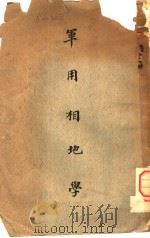 軍用相地學